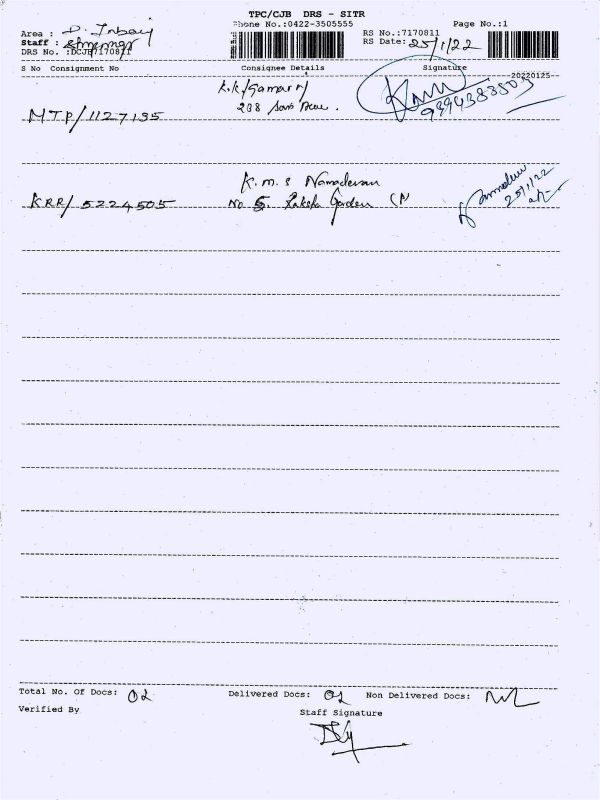 TPC/CJB DRS - SITR
Phone No.:0422-3505555
Page No.:1
Area : D. Inbaij
Staff :
DRS No. :DCJB/7170811
RS No.:7170811
RS Date: 25/1/22
S No Consignment No Consignee Details Signature
20220125
MTP/1127135
K.K/
238
9394383503
K.M.S Namadevan
KRR/5224505 No 5. Garden
25/1/22
Total No. Of Docs: 02 Delivered Docs: 02 Non Delivered Docs: NIL
Verified By
Staff Signature